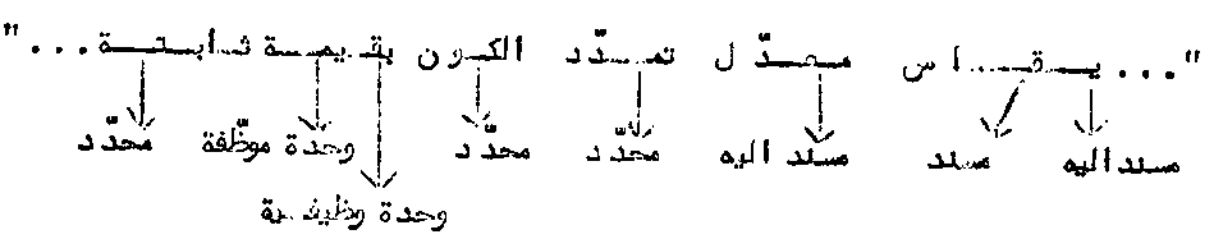 "... يقاس معدّل تمدّد الكون بقيمة ثابتة ..."
مسند اليه مسند مسند اليه محدّد محدّد وحدة موظّفة محدّد
وحدة وظيفية